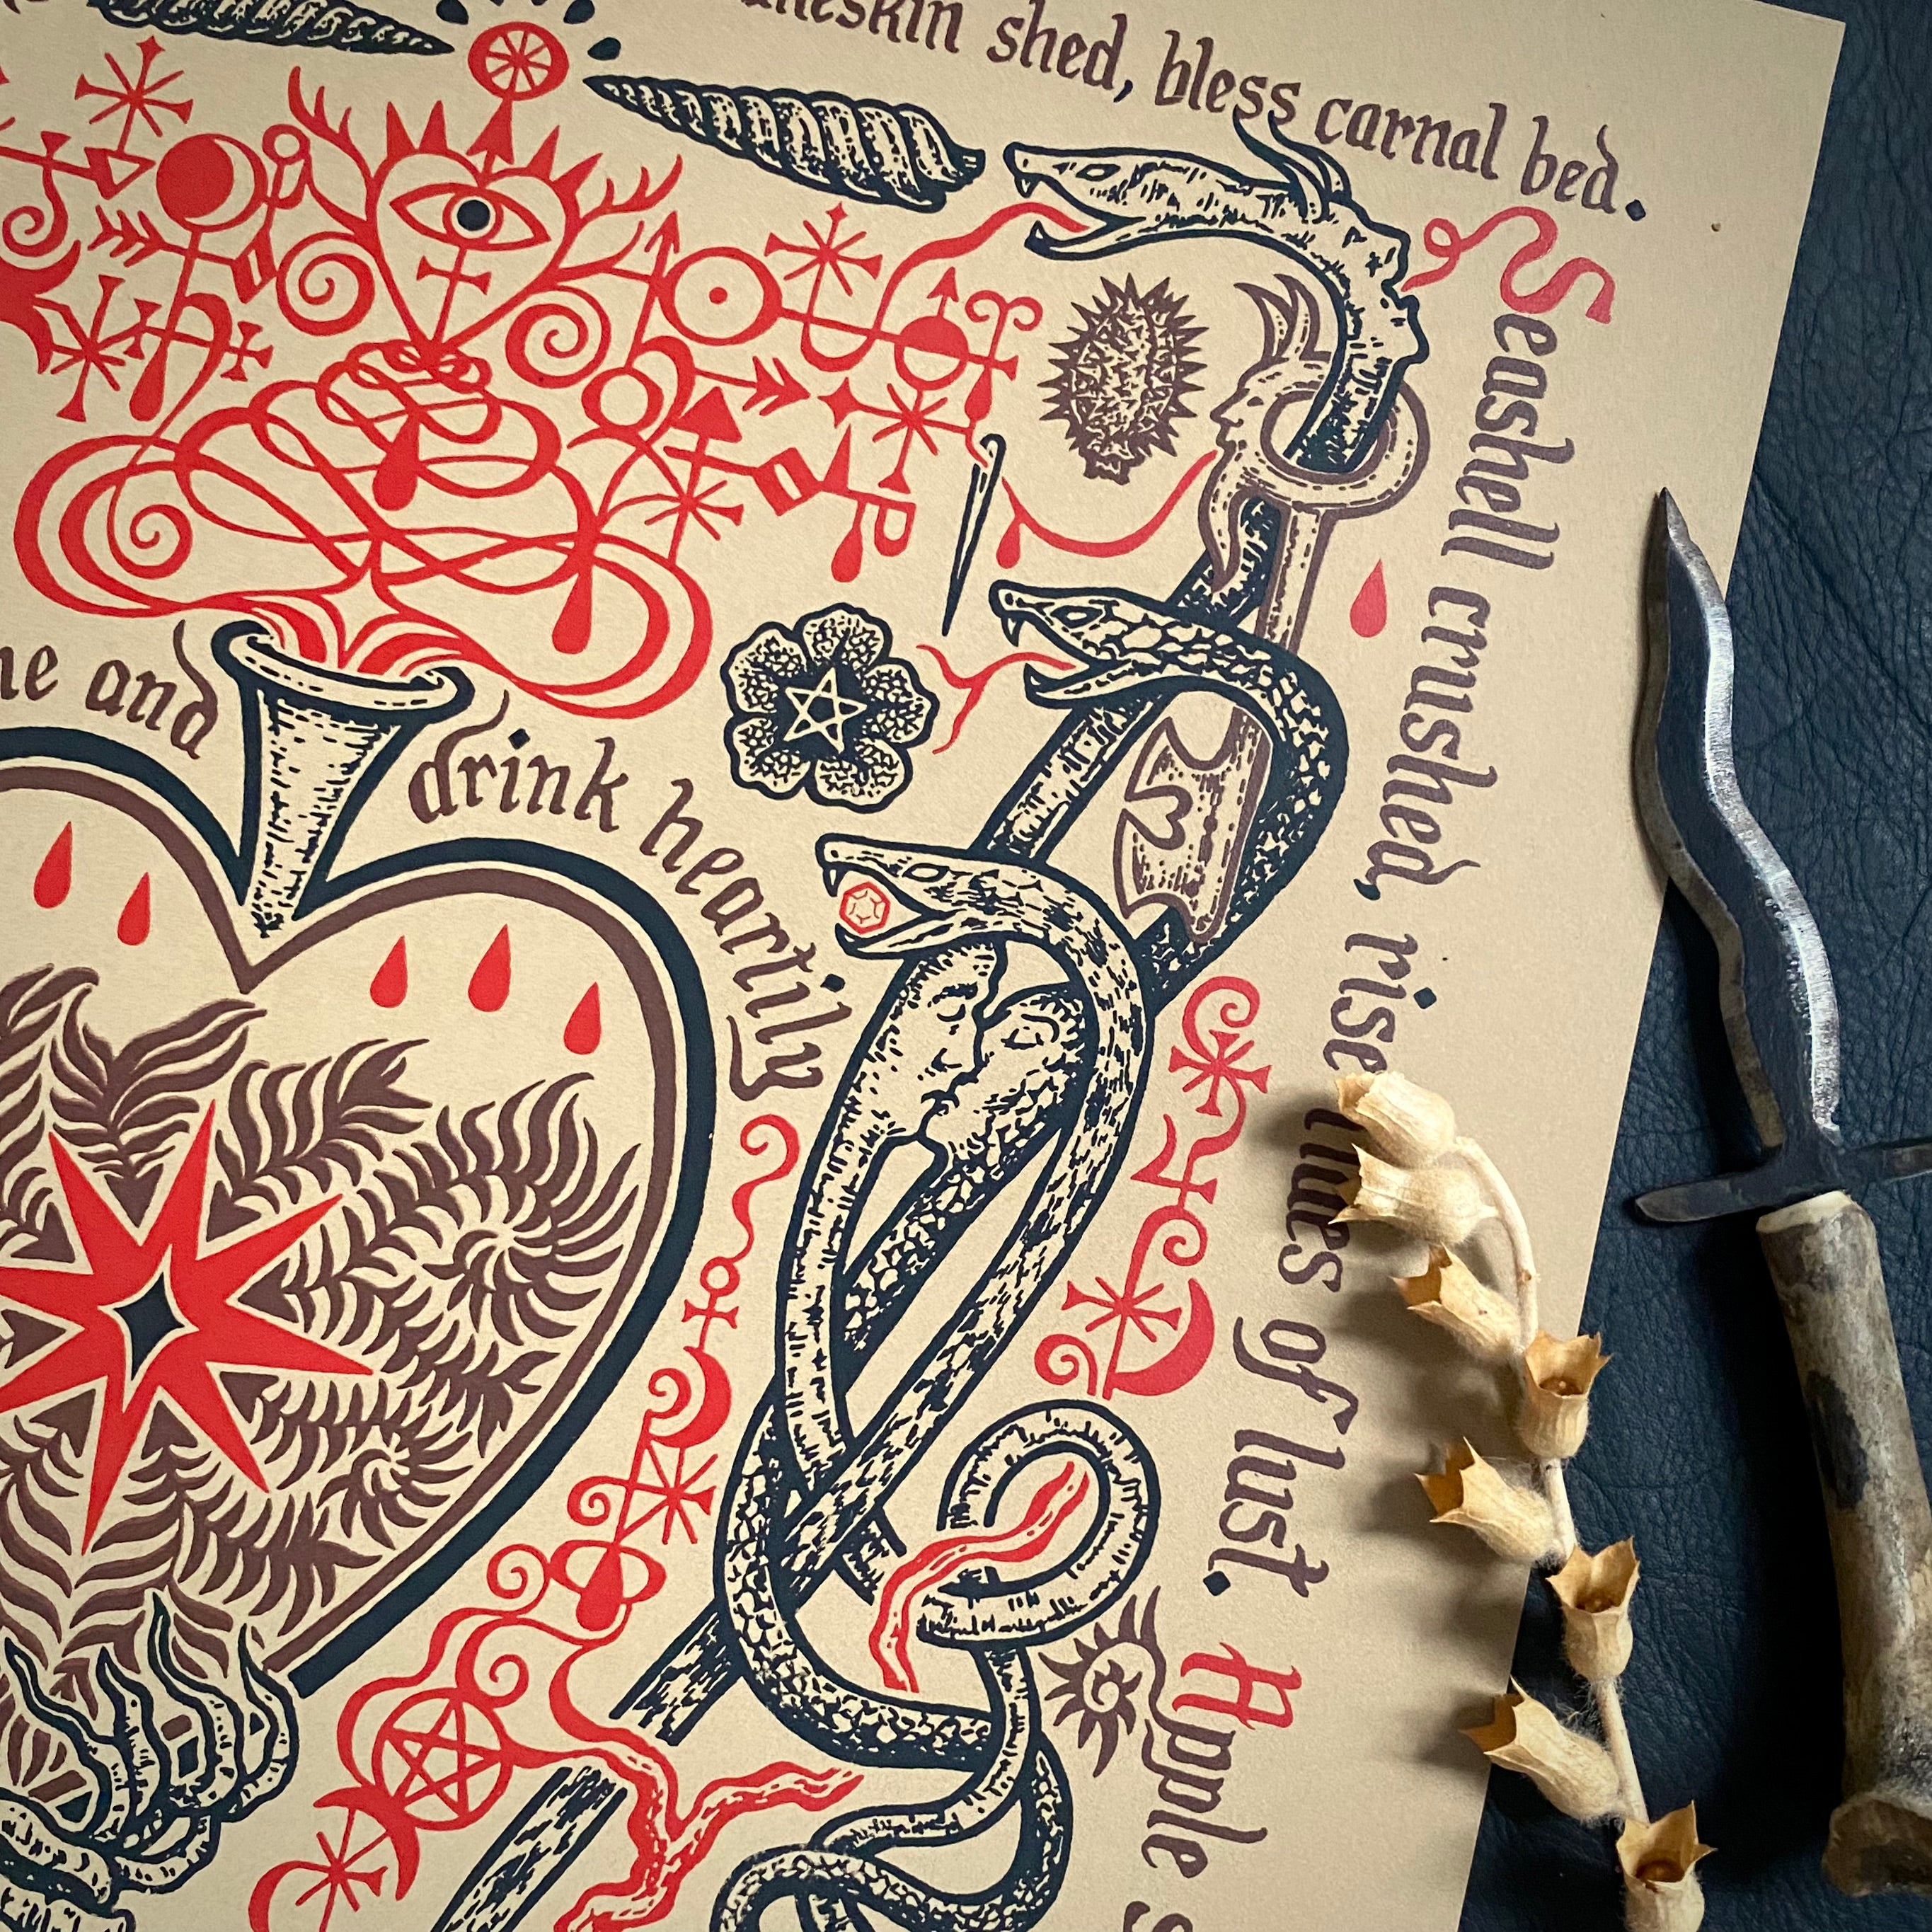 shed, bless carnal bed.
Seashell crushed, rise tides of lust.
Apple
and
drink heartily